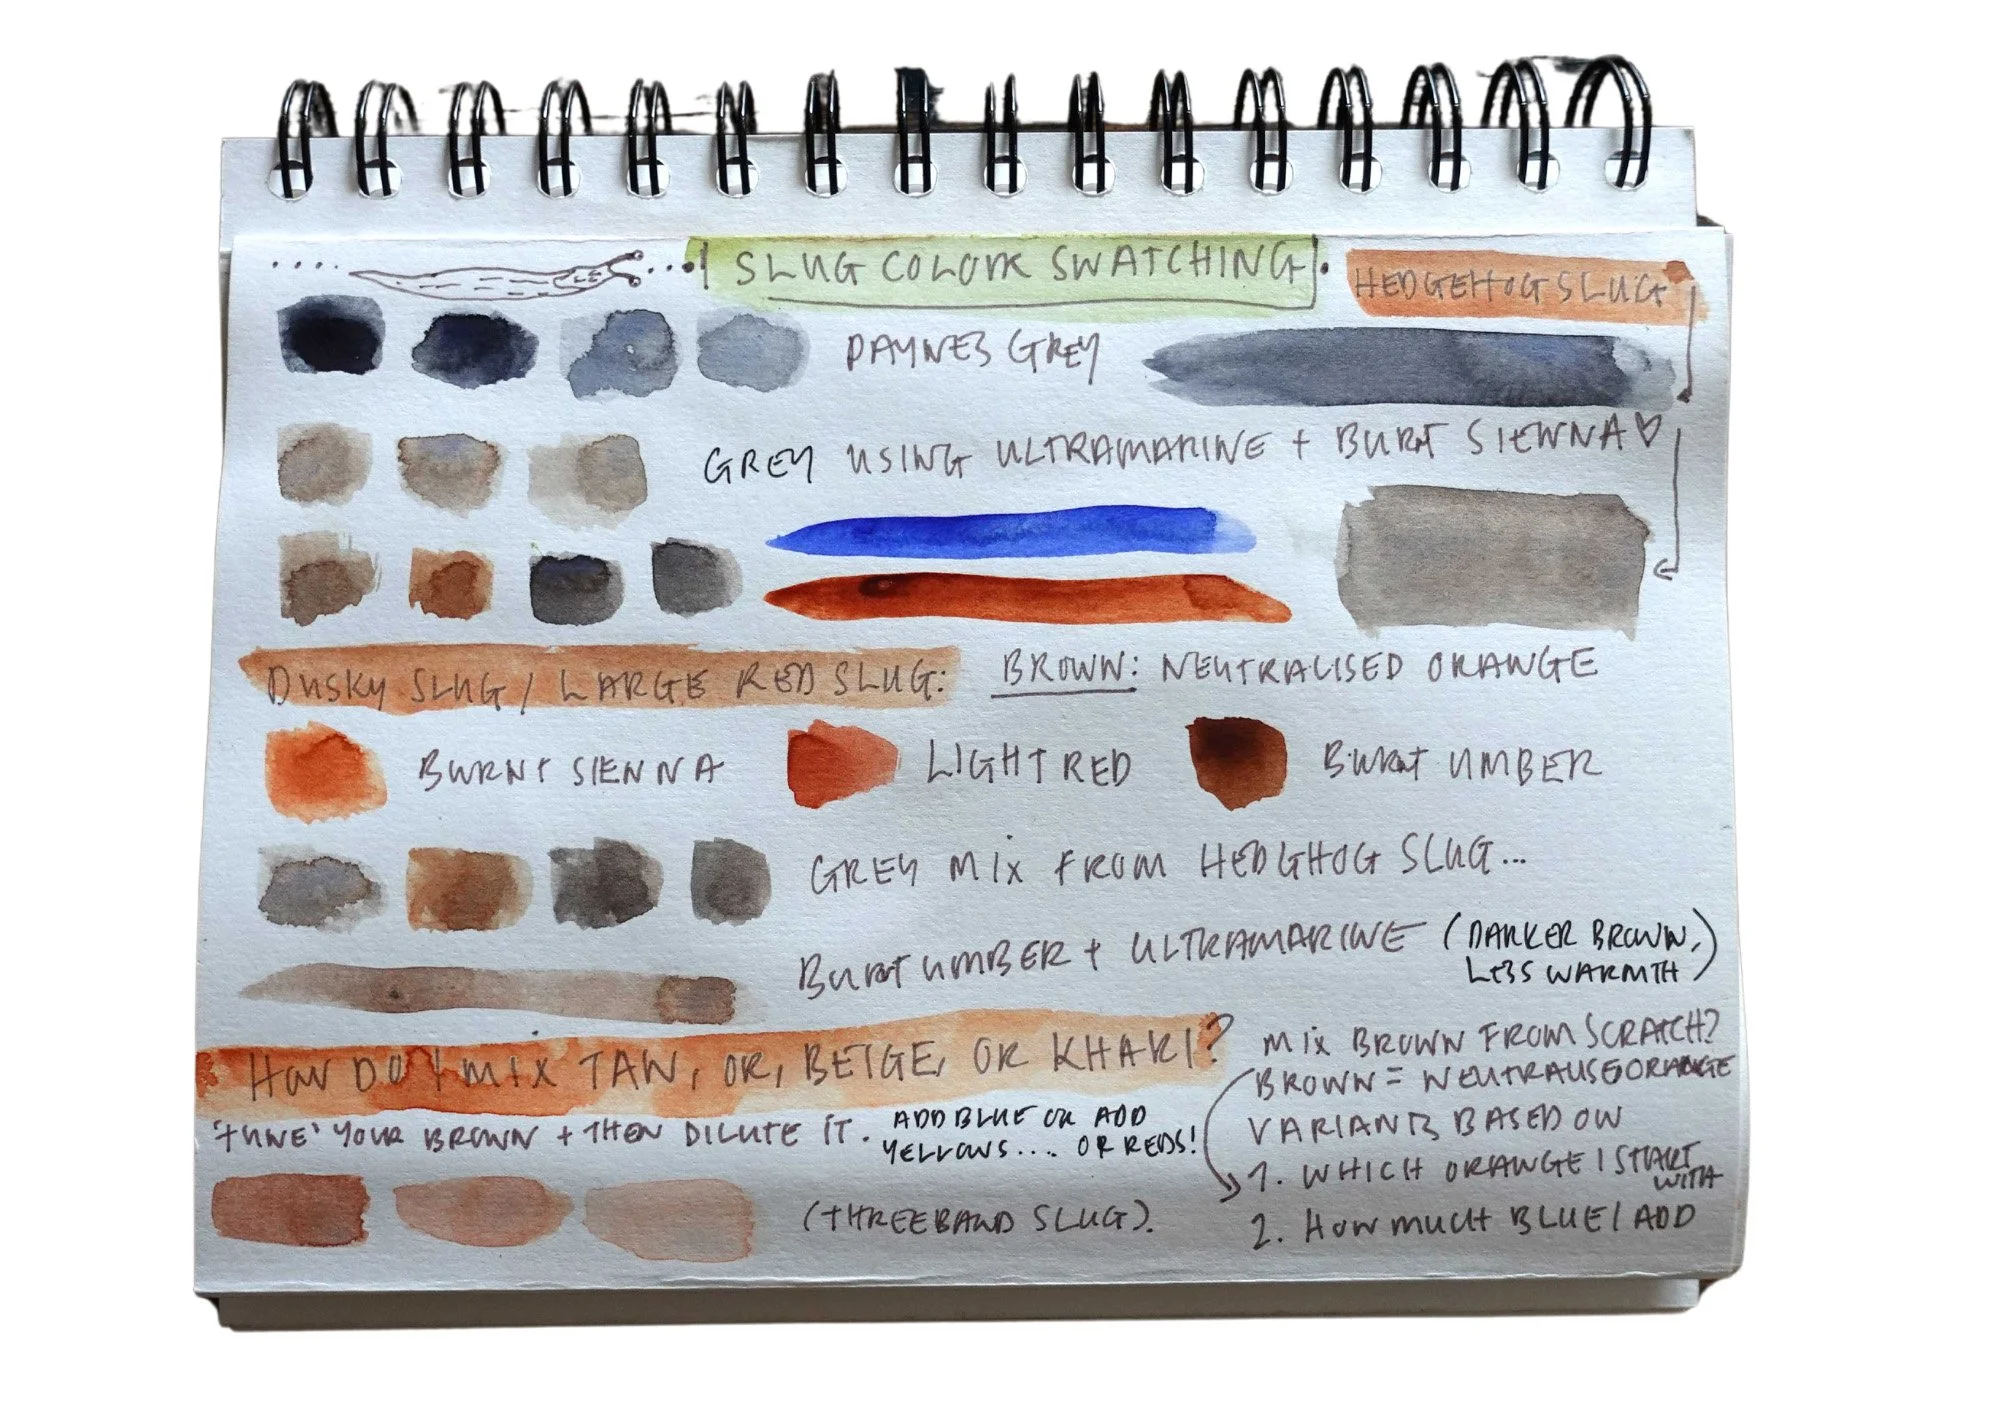 SLUG COLOUR SWATCHING
HEDGEHOG SLUG
PAYNES GREY
GREY USING ULTRAMARINE + BURNT SIENNA
DUSKY SLUG / LARGE RED SLUG:
BROWN: NEUTRALISED ORANGE
BURNT SIENNA
LIGHT RED
BURNT UMBER
GREY MIX FROM HEDGHOG SLUG...
BURNT UMBER + ULTRAMARINE
(DARKER BROWN,
LESS WARMTH)
HOW DO I MIX TAN, OR, BEIGE, OR KHAKI?
'TUNE' YOUR BROWN + THEN DILUTE IT.
ADD BLUE OR ADD
YELLOWS.... OR REDS!
(THREEBAND SLUG).
MIX BROWN FROM SCRATCH?
BROWN = NEUTRALISE ORANGE
VARIANTS BASED ON
1. WHICH ORANGE I START
WITH
2. HOW MUCH BLUE I ADD